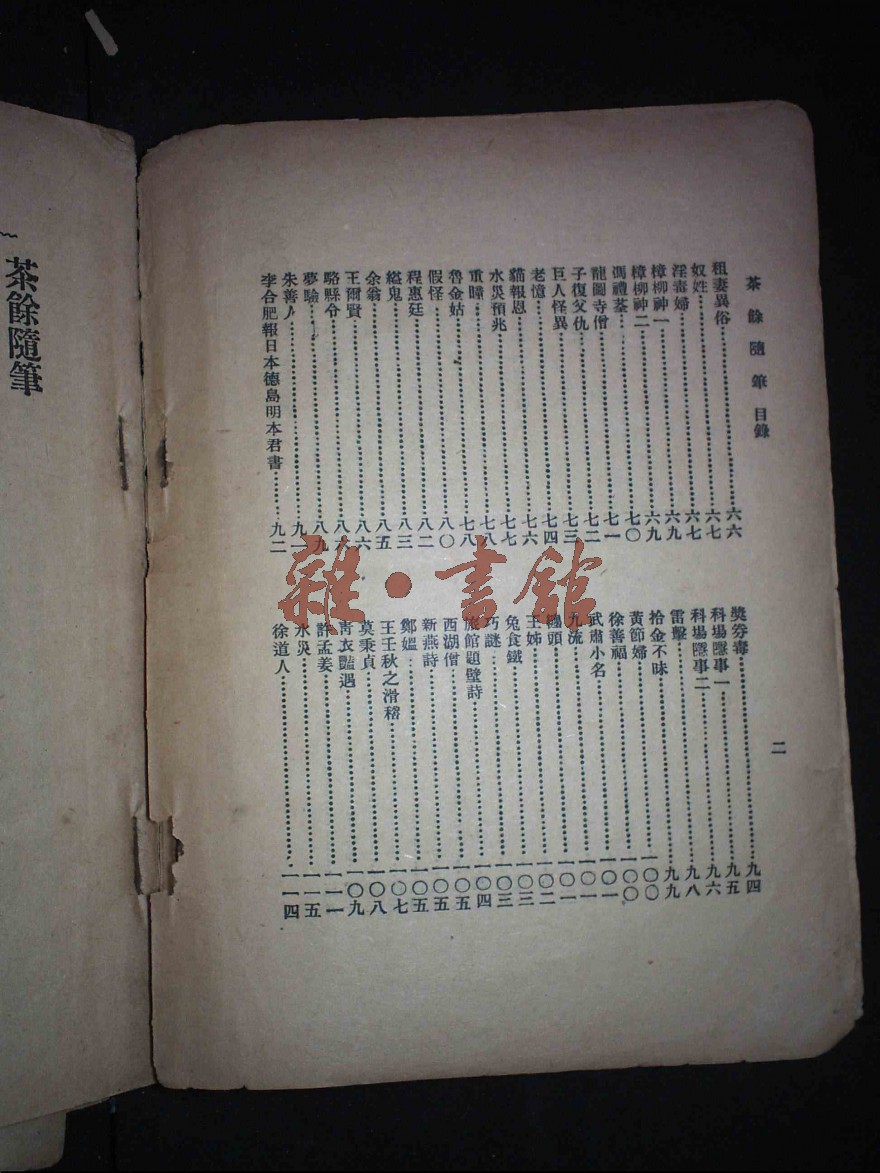 茶餘隨筆目錄
二
租妻異俗……六六
奴姓……六七
淫毒婦……六七
樟柳神一……六九
樟柳神二……六九
馮禮荃……七〇
龍圖寺僧……七一
子復父仇……七二
巨人怪異……七三
老憶……七四
貓報恩……七六
水災預兆……七七
重瞳……七八
魯金姑……七八
假怪……八〇
程惠廷……八二
縊鬼……八三
余翁……八五
王爾賢……八六
略縣令……八六
夢驗……八九
朱善人……九一
李合肥報日本德島明本君書……九二
獎券毒……九四
科場隱事一……九五
科場隱事二……九六
雷擊……九八
拾金不昧……九九
黃節婦……一〇〇
徐善福……一〇〇
武肅小名……一〇一
九流……一〇一
饅頭……一〇一
王姊……一〇二
兔食鐵……一〇三
巧謎……一〇三
旅館題壁詩……一〇四
西湖僧……一〇五
新燕詩……一〇五
鄭媼……一〇五
王壬秋之滑稽……一〇七
莫秉貞……一〇八
青衣豔遇……一〇九
許孟姜……一一一
水災……一一五
徐道人……一一四
茶餘隨筆
雜·書館